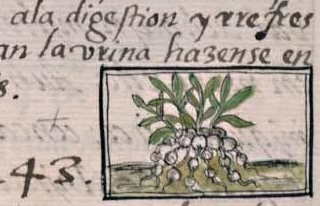 ala digestion yrrefres
an la vrina hazense en
s.
.43.